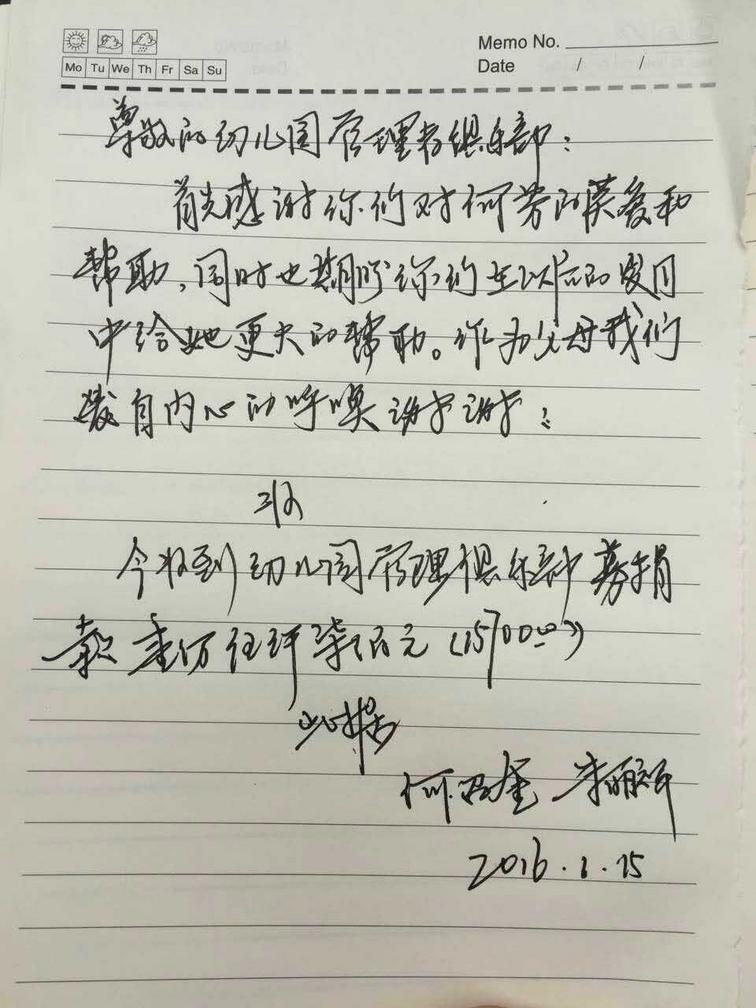 Memo No.
Mo Tu We Th Fr Sa Su
Date / /
尊敬的幼儿园管理者俱乐部:
首先感谢你们对何芳的关爱和
帮助,同时也期盼你们在以后的岁月
中给她更大的帮助。作为父母我们
发自内心的呼唤谢谢!
今收到幼儿园管理俱乐部募捐
款壹万伍仟柒佰元(15700.00)
此据
何 朱丽
2016.1.15